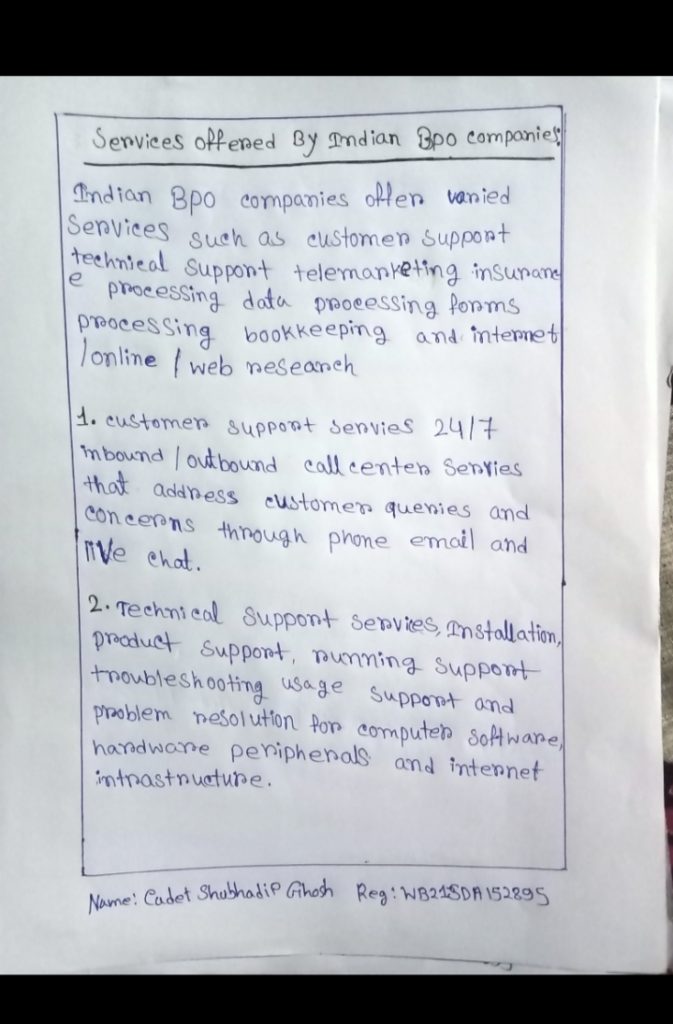 Services offered By Indian Bpo companies.
Indian Bpo companies offer varied
Services such as customer support
technical support telemarketing insuranc
e processing data processing forms
processing bookkeeping and internet
/online / web research
1. customer support servies 24/7
inbound / outbound call center servies
that address customer queries and
concerns through phone email and
live chat.
2. Technical support servies, Installation,
product support, running support
troubleshooting usage support and
problem resolution for computer software,
hardware peripherals and internet
intrastructure.
Name: Cadet Shubhadip Ghosh Reg: WB21SDA152895